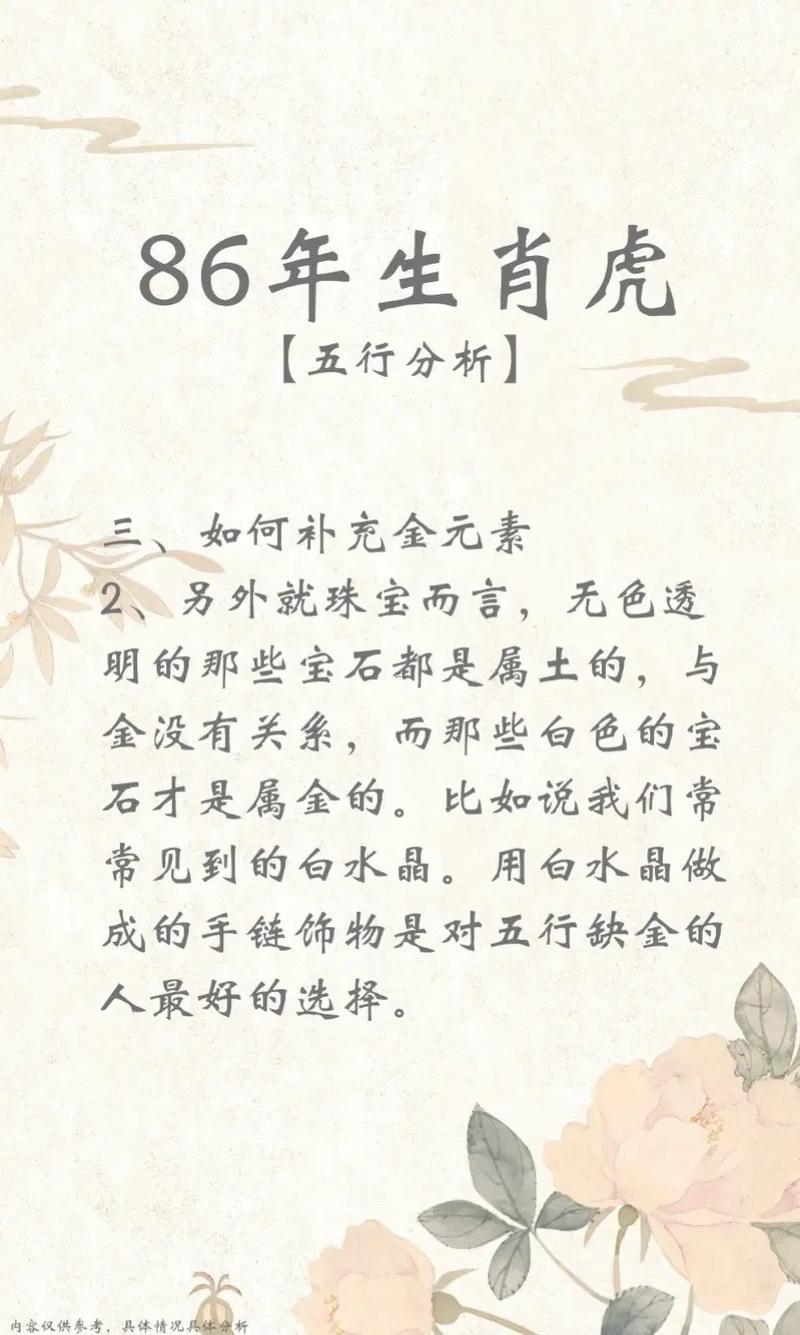 86年生肖虎
【五行分析】
三、如何补充金元素
2、另外就珠宝而言，无色透
明的那些宝石都是属土的，与
金没有关系，而那些白色的宝
石才是属金的。比如说我们常
常见到的白水晶。用白水晶做
成的手链饰物是对五行缺金的
人最好的选择。
内容仅供参考，具体情况具体分析